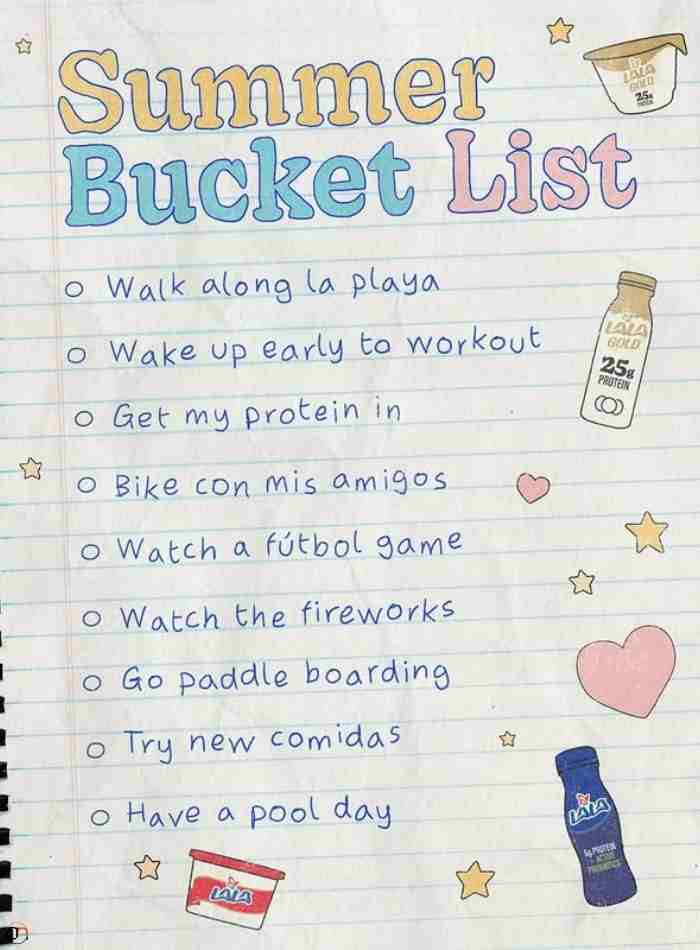 Summer
Bucket List
LALA
GOLD
25g
PROTEIN
Walk along la playa
LALA
GOLD
25g
PROTEIN
Wake up early to workout
Get my protein in
Bike con mis amigos
Watch a fútbol game
Watch the fireworks
Go paddle boarding
Try new comidas
LALA
5g PROTEIN
ACTIVE
PROBIOTICS
Have a pool day
LALA